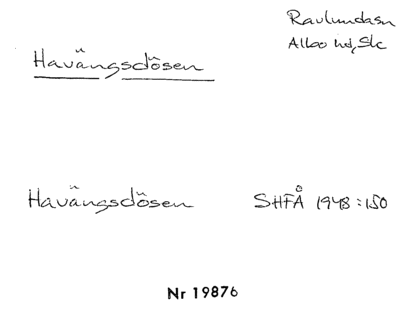 Ravlundasn
Albo hd, Sk
Havängsdösen
Havängsdösen SHFÅ 1948:150
Nr 19876